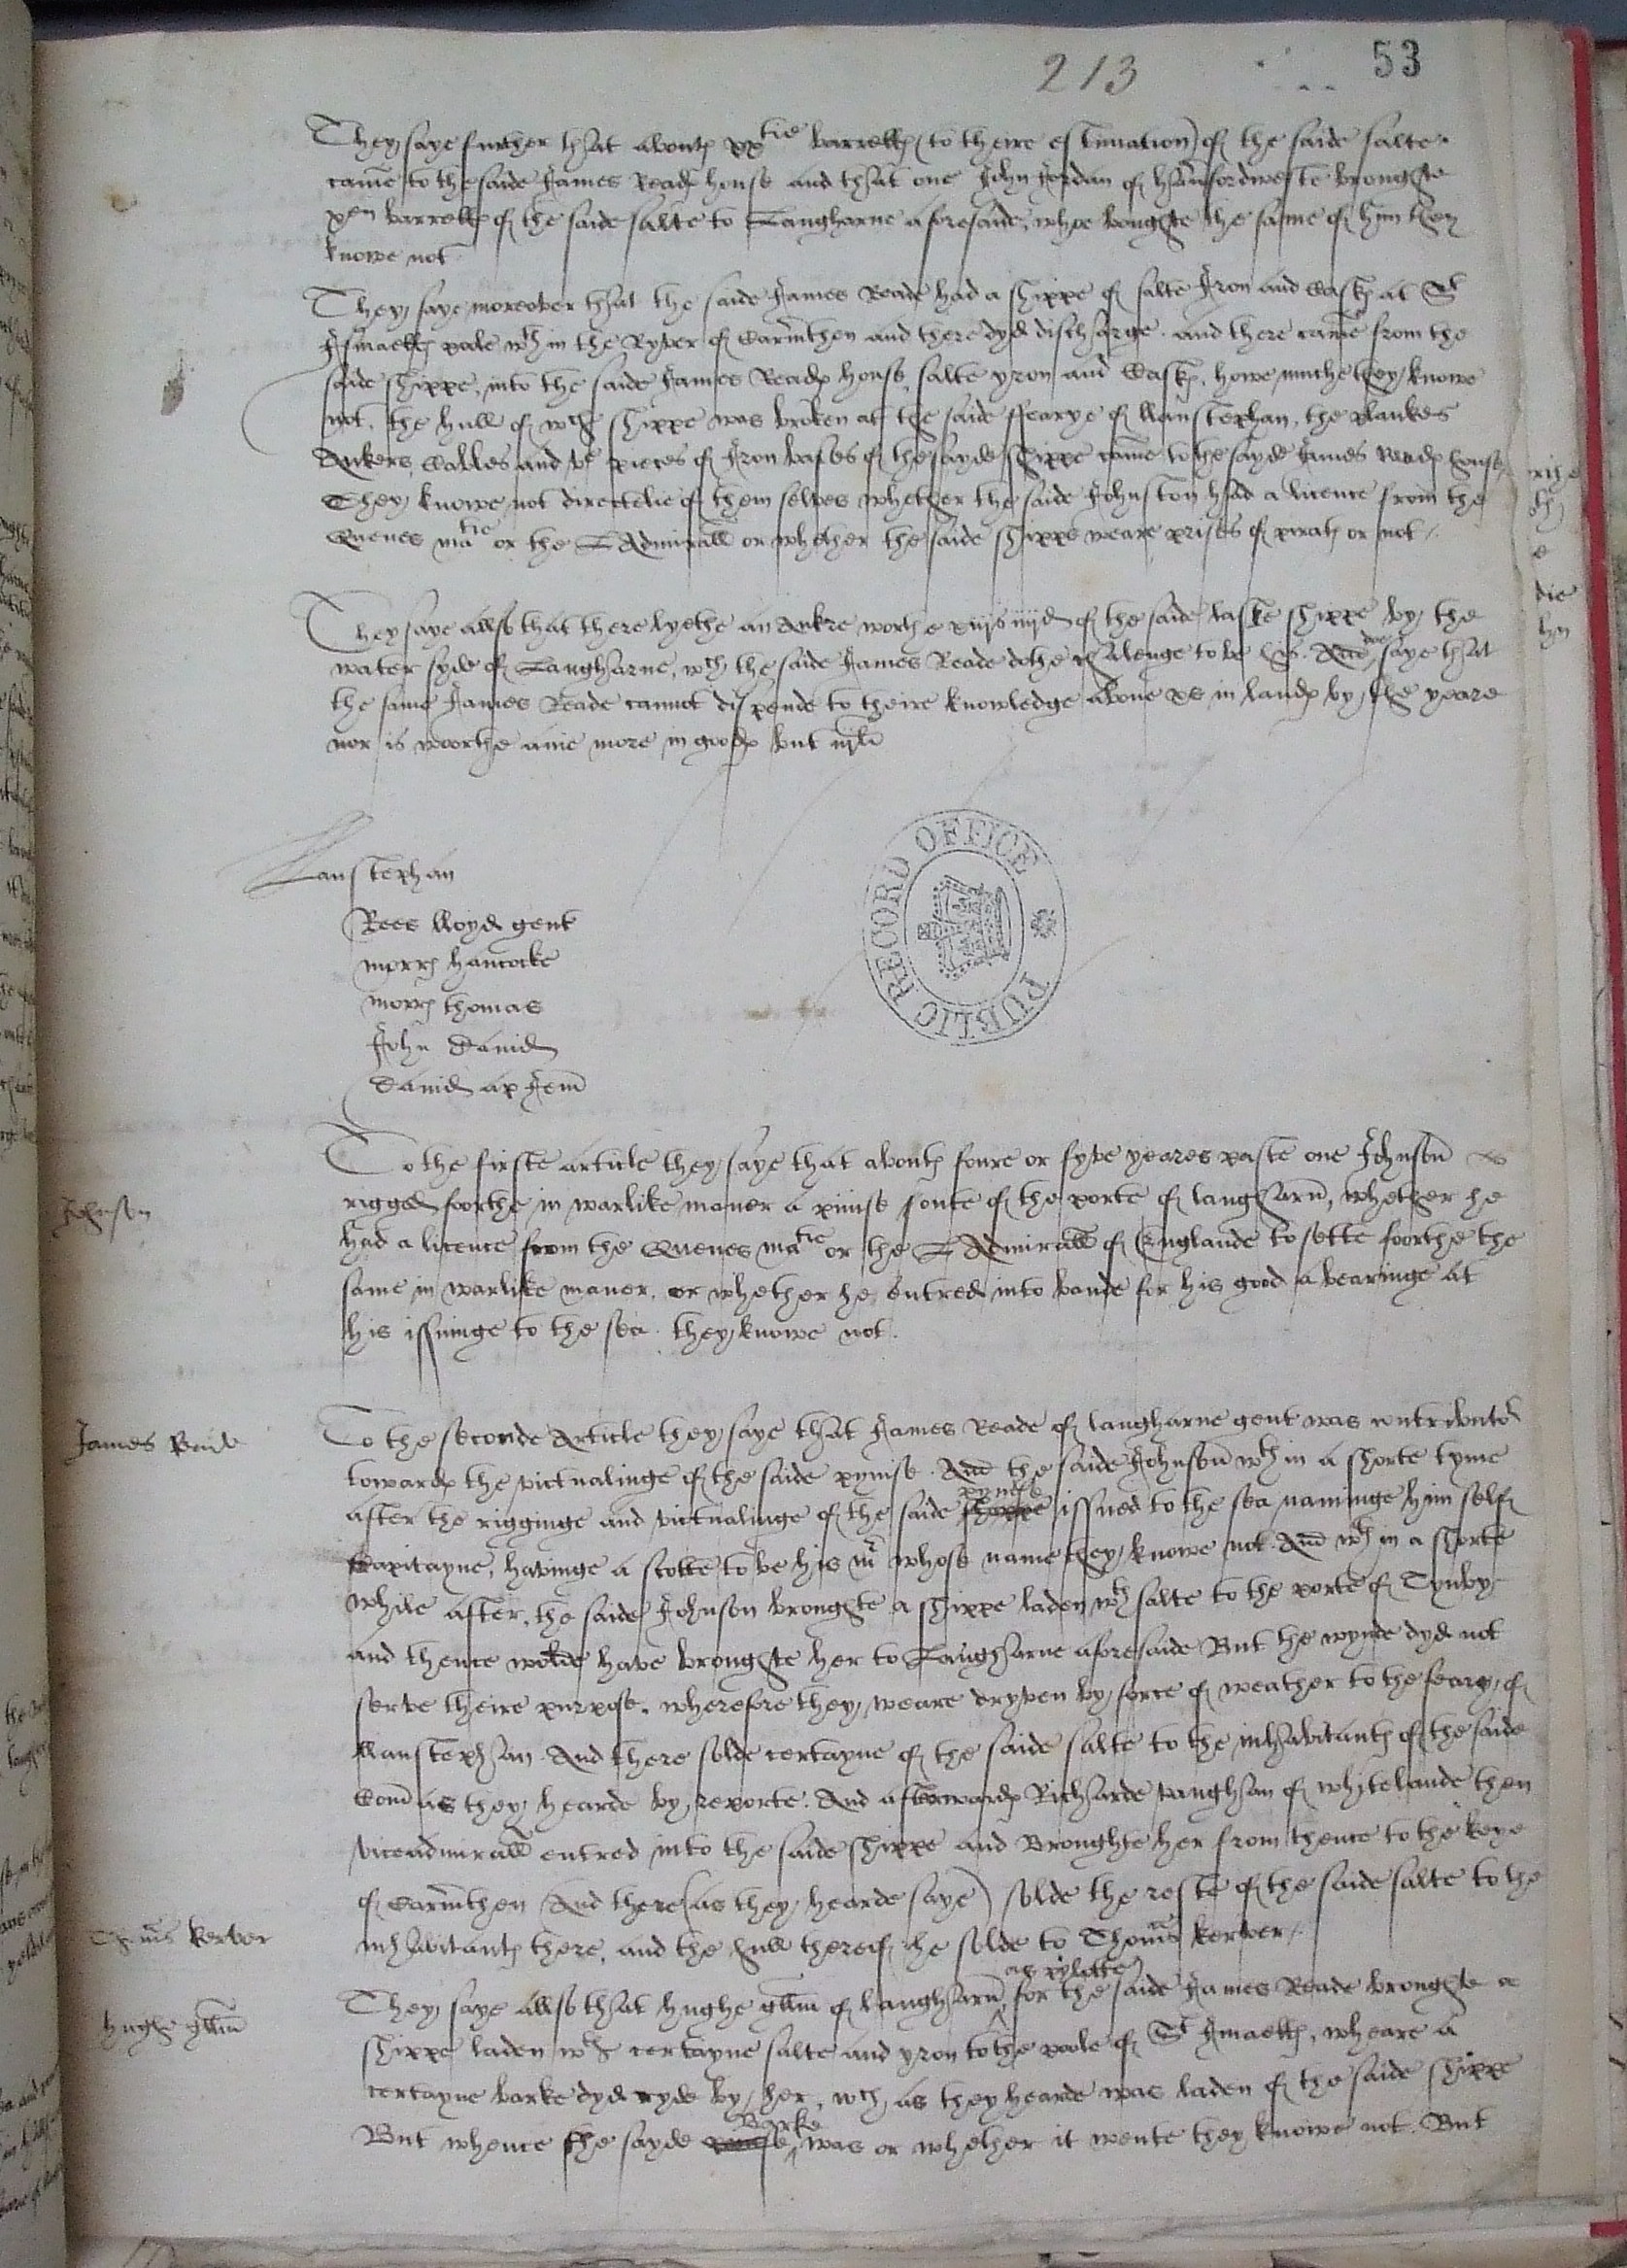 213 53
They saye further that aboute xxtie barrelles (to theire estimation) of the saide salte
came to the saide James Reades house and that one John Jordan of harfordweste broughte
xen barrelles of the saide salte to Laugharne aforesaide, whoe boughte the same of him they
knowe not
They saye moreover that the saide James Reade had a shippe of salte Iron and Caskes at St
Ismaells poole wth in the Ryver of Carmthen and there dyd discharge. and there came from the
saide shippe, into the saide James Reades house, salte yron and Caskes, howe muche they knowe
not. the hull of wch shippe was broken at the saide fferye of llanstephan, the plankes
Ankers, Cables and pieces of Iron bases of the sayde shippe came to the sayde James Reades house
They knowe not directelie of them selves whether the saide Johnston had a licence from the
Quenes matie or the L Admirall or whether the saide shippe weare prises of pirates or not
They saye allso that there lyethe an Ankre worthe xiijs iiijd of the saide laste shippe by the
water syde of Laugharne, wch the saide James Reade dothe chalenge to be his. And doe saye that
the same James Reade cannot dispende to theire knowledge above xs in landes by the yeare
nor is woorthe anie more in goodes but iijli
PUBLIC RECORD OFFICE
Lanstephan
Rees lloyd gent
morris hancocke
morris thomas
John David
David ap Jem
To the firste article they saye that aboute foure or fyve yeares paste one Johnson
Johnson
rigged foorthe in warlike maner a pinise foute of the porte of langharn, whether he
had a licence from the Quenes matie or the L Admirall of Englande to sette foorthe the
same in warlike maner, or whether he entred into bande for his good abearinge at
his issuinge to the sea. they knowe not.
James Reade
To the seconde Article they saye that James Reade of langharne gent was contributor
towardes the victualinge of the saide pynise. And the saide Johnson wth in a shorte tyme
after the rigginge and victualinge of the saide shippe pynise issued to the sea naminge him self
Capitayne, havinge a scotte to be his mr whose name they knowe not. And wth in a shorte
while after, the saide Johnson broughte a shippe laden wth salte to the porte of Tynby
and thence wolde have broughte her to Laugharne aforesaide But the wynde dyd not
serve theire purpose. wherefore they weare dryven by force of weather to the feary of
llanstephan. And there solde certayne of the saide salte to the inhabitantes of the saide
Com as they hearde by reporte. And afterwardes Richarde vaughan of whytelande then
viceadmirall entred into the saide shippe and Broughte her from thence to the keye
of Carmthen And there (as they hearde saye) solde the reste of the saide salte to the
Thoms kerver
inhabitantes there, and the hull thereof he solde to Thoms kerver
Hughe gllm
They saye allso that hughe gllm of langharn as pylotte for the saide James Reade broughte a
shippe laden wth certayne salte and yron to the poole of St Ismaells, wheare a
certayne barke dyd ryde by her, wch as they hearde was laden of the saide shippe
But whence the sayde Barke was or whether it wente they knowe not. But